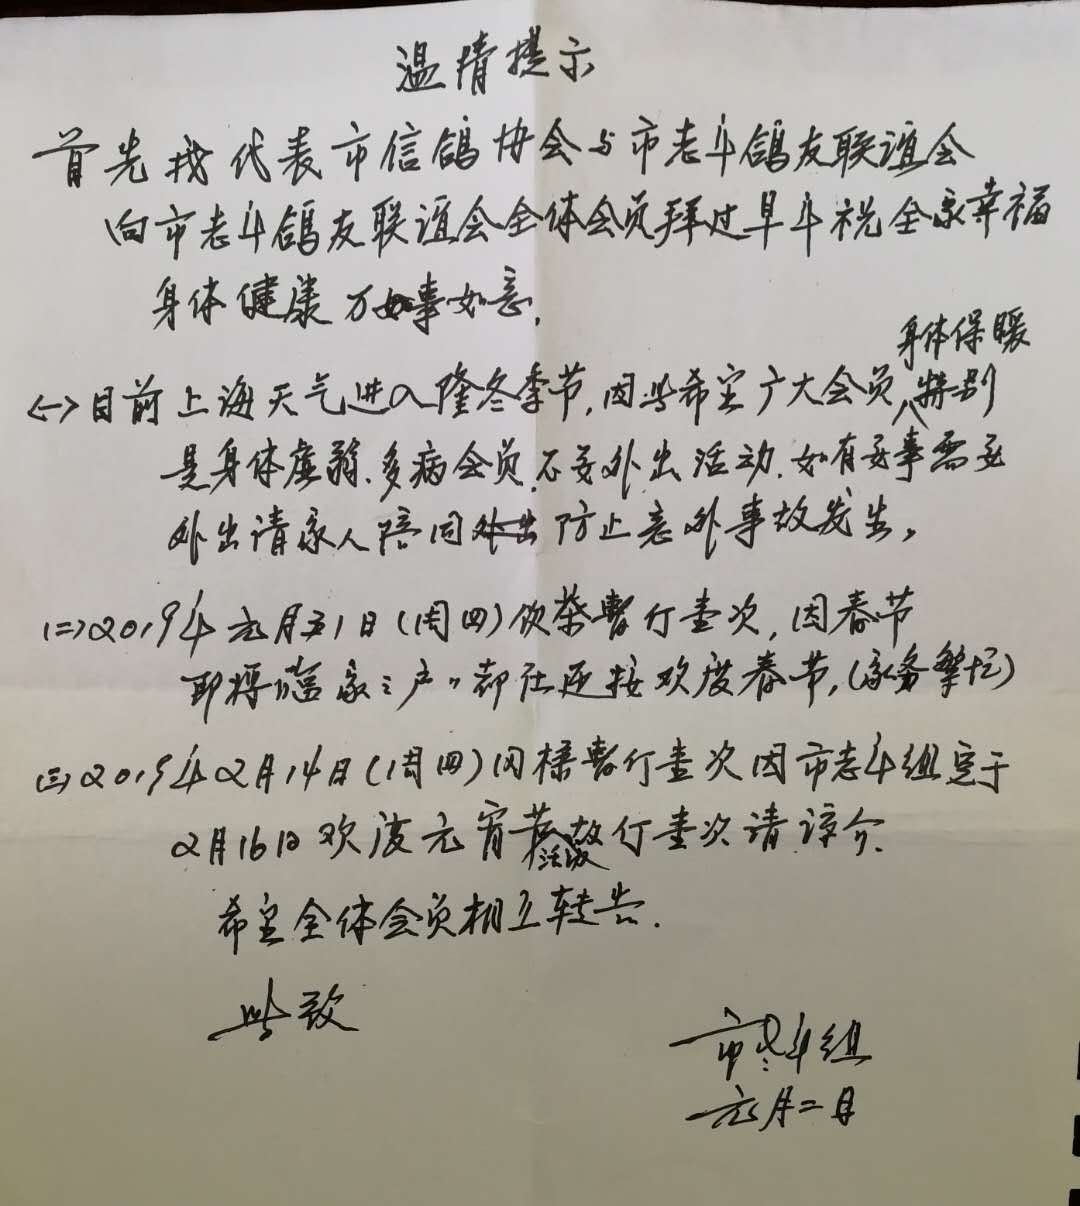 温情提示
首先我代表市信鸽协会与市老年鸽友联谊会
向市老年鸽友联谊会全体会员拜过早年祝全家幸福
身体健康万事如意.
身体保暖
(一)目前上海天气进入隆冬季节,因此希望广大会员,特别
是身体虚弱.多病会员.不要外出活动.如有要事需要
外出请家人陪同防止意外事故发生。
(二)2019年元月31日(周四)饮茶暂停壹次,因春节
即将临家家户户都在迎接欢度春节,(家务繁忙)
(三)2019年2月14日(周四)同样暂停壹次因市老年组定于
2月16日欢度元宵节活动故停壹次请谅介.
希望全体会员相互转告.
此致
市老年组
元月二日